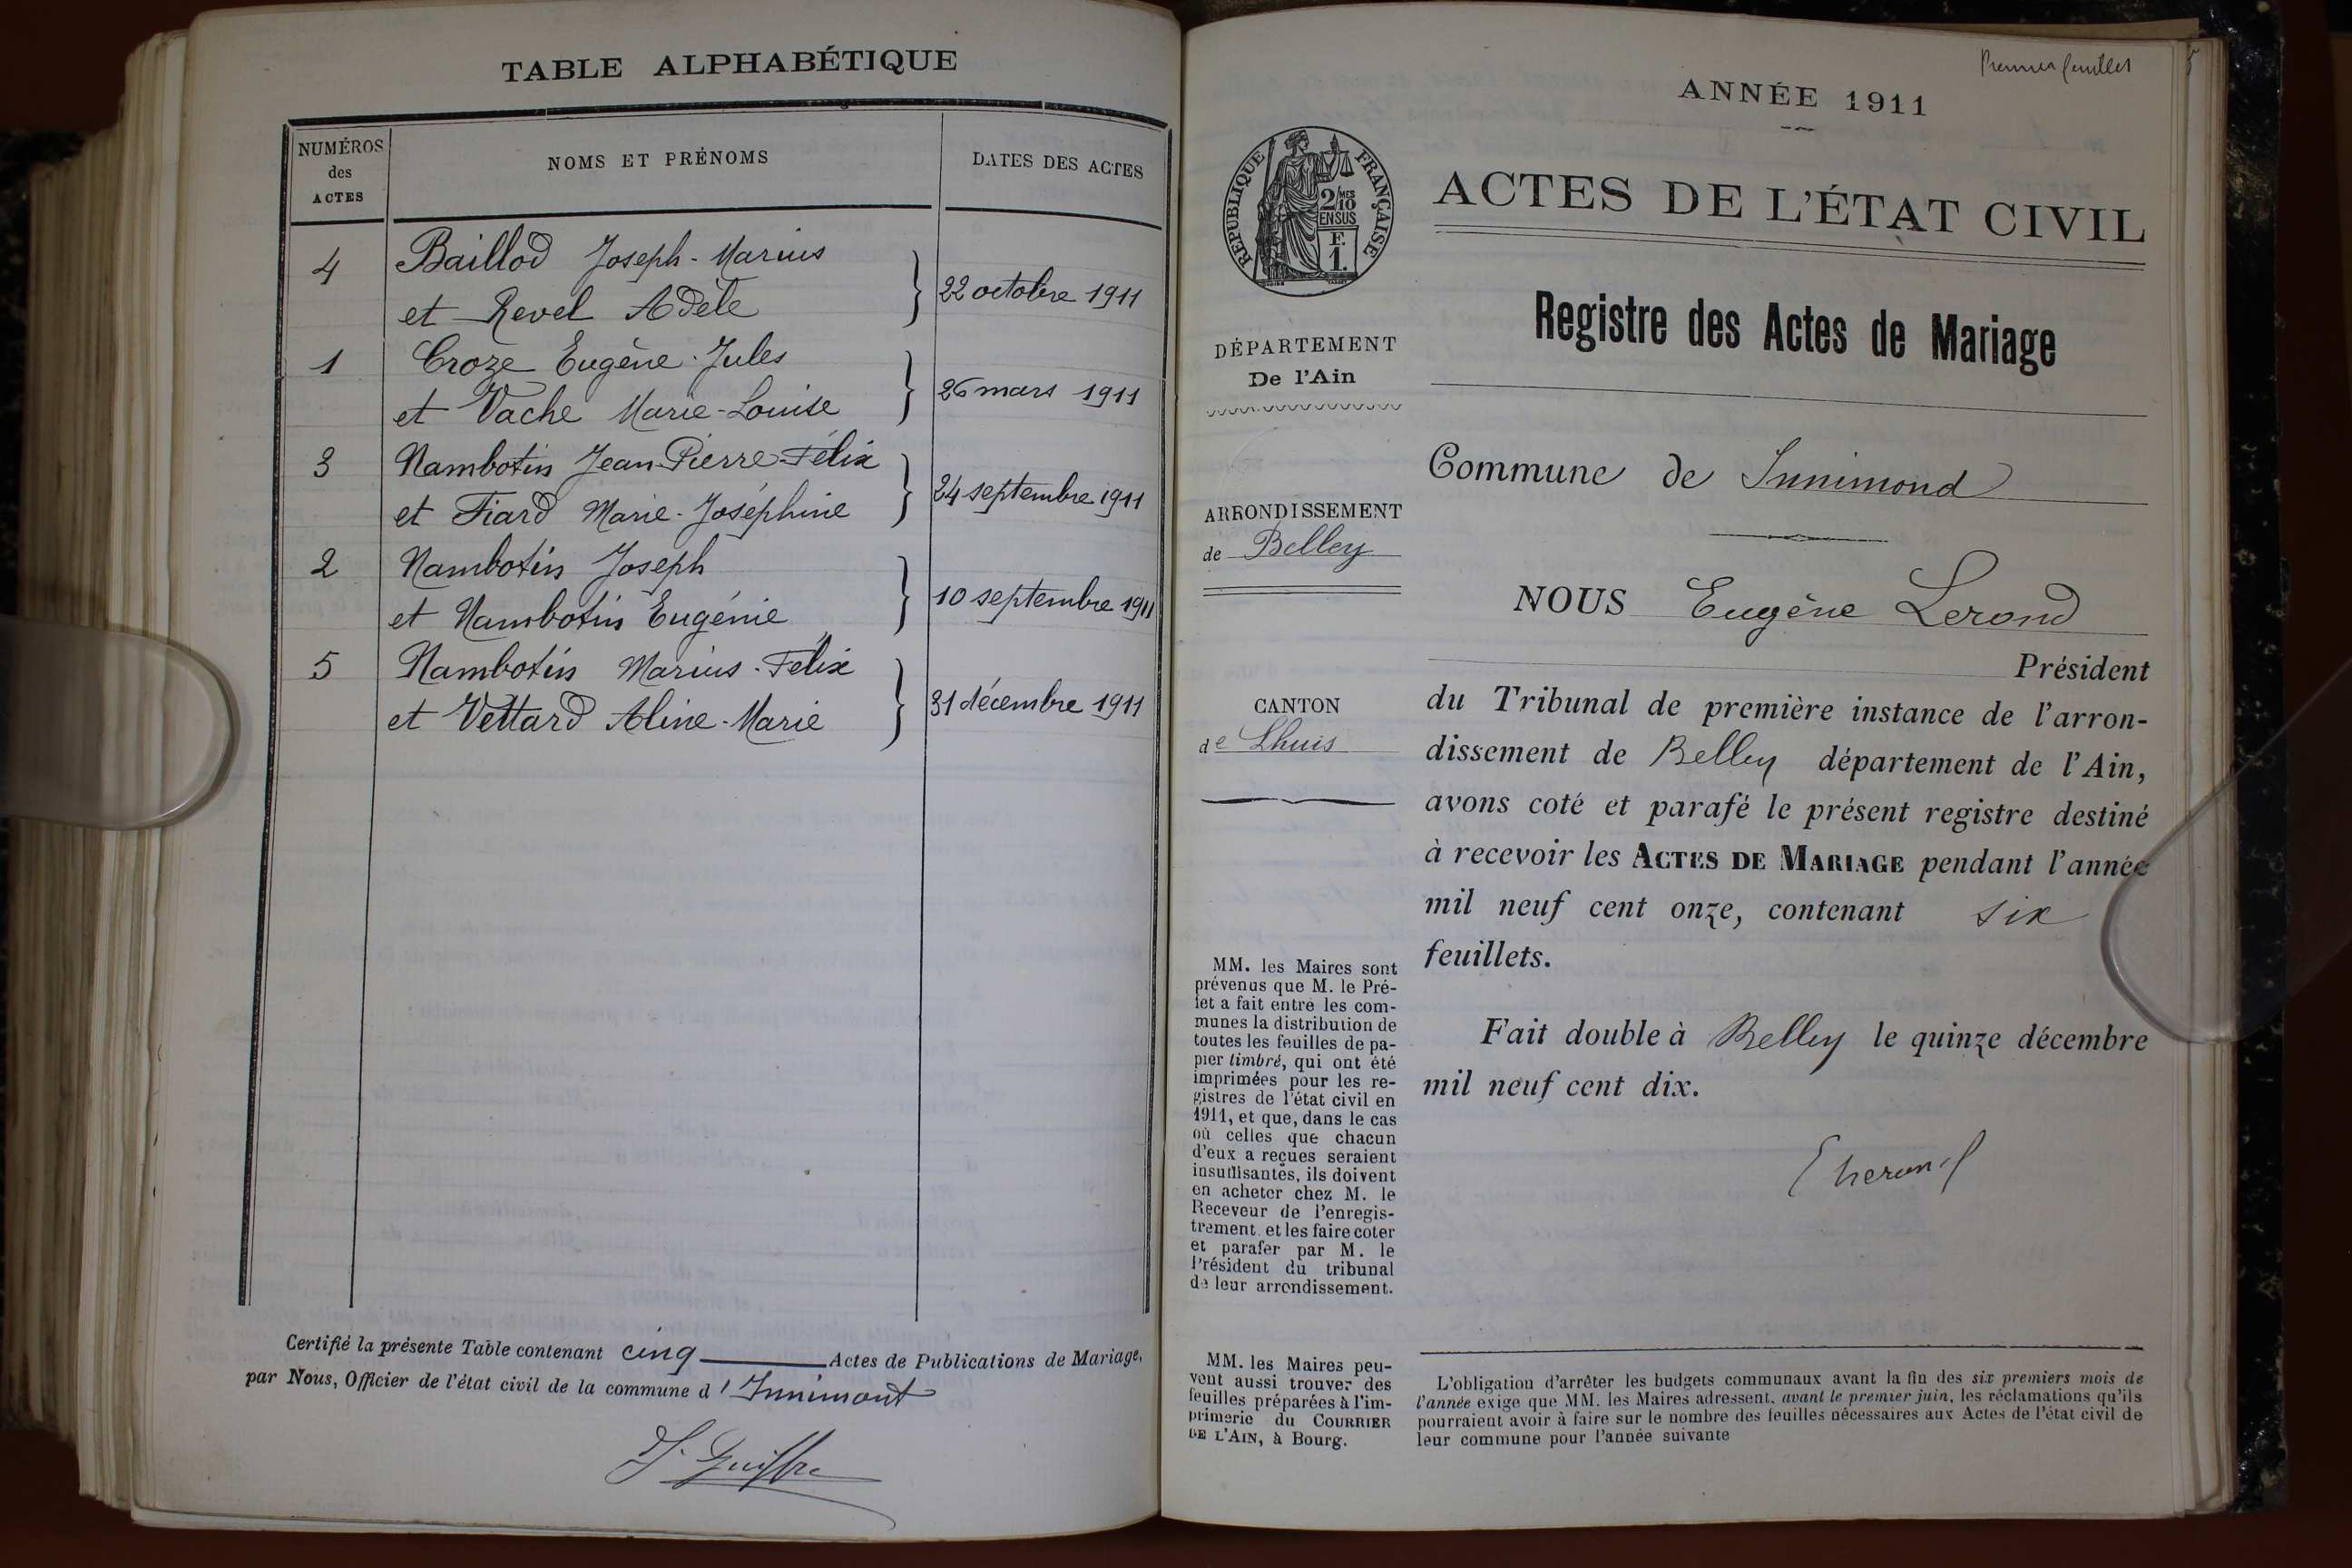 TABLE ALPHABÉTIQUE
NUMÉROS
des
ACTES
NOMS ET PRÉNOMS
DATES DES ACTES
4 Baillod Joseph-Marius
et Revel Adèle
22 octobre 1911
1 Croze Eugène-Jules
et Vache Marie-Louise
26 mars 1911
3 Nambotin Jean-Pierre-Félix
et Fiard Marie-Joséphine
24 septembre 1911
2 Nambotin Joseph
et Nambotin Eugénie
10 septembre 1911
5 Nambotin Marius-Félix
et Vettard Aline-Marie
31 décembre 1911
Certifié la présente Table contenant cinq Actes de Publications de Mariage,
par Nous, Officier de l'état civil de la commune d'Innimont
Premier feuillet
ANNÉE 1911
RÉPUBLIQUE FRANÇAISE
2/10
MES
EN SUS
F.
1.
ACTES DE L'ÉTAT CIVIL
Registre des Actes de Mariage
DÉPARTEMENT
De l'Ain
ARRONDISSEMENT
de Belley
CANTON
de Lhuis
MM. les Maires sont
prévenus que M. le Pré-
fet a fait entre les com-
munes la distribution de
toutes les feuilles de pa-
pier timbré, qui ont été
imprimées pour les re-
gistres de l'état civil en
1911, et que, dans le cas
où celles que chacun
d'eux a reçues seraient
insuffisantes, ils doivent
en acheter chez M. le
Receveur de l'enregis-
trement et les faire coter
et parafer par M. le
Président du tribunal
de leur arrondissement.
MM. les Maires peu-
vent aussi trouver des
feuilles préparées à l'im-
primerie du COURRIER
DE L'AIN, à Bourg.
Commune de Innimond
NOUS Eugène Lerond
Président
du Tribunal de première instance de l'arron-
dissement de Belley département de l'Ain,
avons coté et parafé le présent registre destiné
à recevoir les ACTES DE MARIAGE pendant l'année
mil neuf cent onze, contenant six
feuillets.
Fait double à Belley le quinze décembre
mil neuf cent dix.
L'obligation d'arrêter les budgets communaux avant la fin des six premiers mois de
l'année exige que MM. les Maires adressent, avant le premier juin, les réclamations qu'ils
pourraient avoir à faire sur le nombre des feuilles nécessaires aux Actes de l'état civil de
leur commune pour l'année suivante